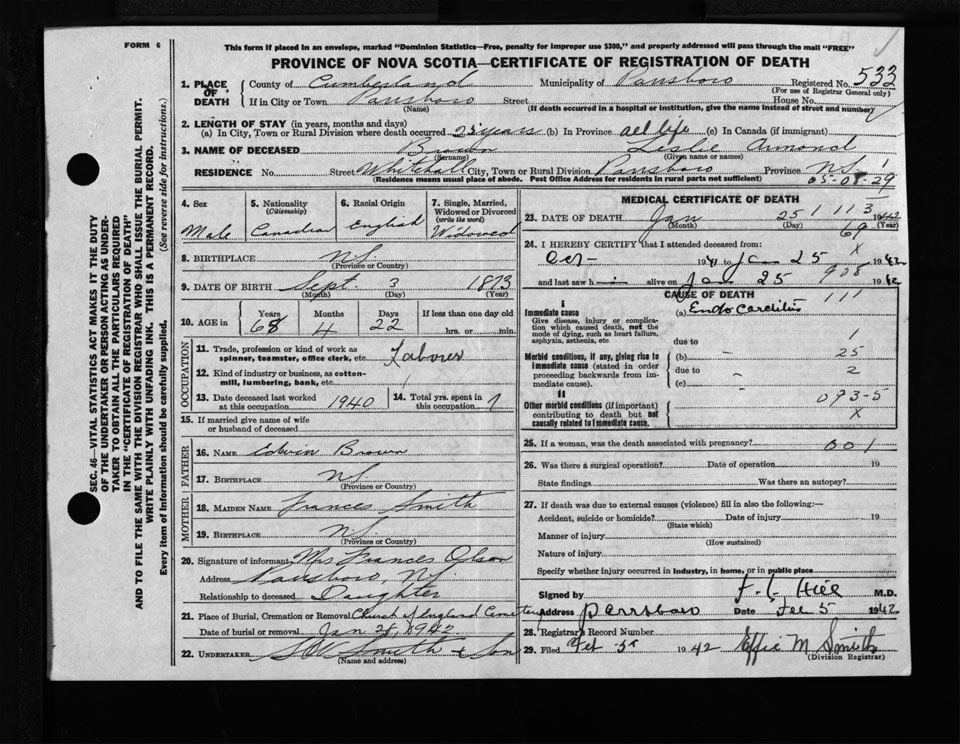 FORM 6
This form if placed in an envelope, marked "Dominion Statistics—Free, penalty for improper use $300," and properly addressed will pass through the mail "FREE"
PROVINCE OF NOVA SCOTIA—CERTIFICATE OF REGISTRATION OF DEATH
1. PLACE OF DEATH County of Cumberland Municipality of Parrsboro Registered No. 533
(For use of Registrar General only)
If in City or Town Parrsboro Street House No.
(Name) (If death occurred in a hospital or institution, give the name instead of street and number)
2. LENGTH OF STAY (in years, months and days)
(a) In City, Town or Rural Division where death occurred 23 years (b) In Province all life (c) In Canada (if immigrant)
3. NAME OF DECEASED Brown Leslie Armond
(Surname) (Given name or names)
RESIDENCE No. Street Whitehall City, Town or Rural Division Parrsboro Province N.S. 1
(Residence means usual place of abode. Post Office Address for residents in rural parts not sufficient) 05-08-29
4. Sex Male
5. Nationality (Citizenship) Canadian
6. Racial Origin English
7. Single, Married, Widowed or Divorced (write the word) Widowed
8. BIRTHPLACE N.S.
(Province or Country)
9. DATE OF BIRTH Sept. 3 1873
(Month) (Day) (Year)
10. AGE in Years Months Days If less than one day old
68 4 22 hrs. or min.
OCCUPATION
11. Trade, profession or kind of work as spinner, teamster, office clerk, etc. Laborer
12. Kind of industry or business, as cotton-mill, lumbering, bank, etc.
13. Date deceased last worked at this occupation 1940
14. Total yrs. spent in this occupation 7
15. If married give name of wife or husband of deceased
FATHER
16. NAME Edwin Brown
17. BIRTHPLACE N.S.
(Province or Country)
MOTHER
18. MAIDEN NAME Frances Smith
19. BIRTHPLACE N.S.
(Province or Country)
20. Signature of informant Mrs Frances Olson
Address Parrsboro, N.S.
Relationship to deceased Daughter
21. Place of Burial, Cremation or Removal Church of England Cemetery
Date of burial or removal Jan 28, 1942
22. UNDERTAKER Smith & Son
(Name and address)
MEDICAL CERTIFICATE OF DEATH
23. DATE OF DEATH Jan 25 1113 1942
(Month) (Day) 69 (Year)
24. I HEREBY CERTIFY that I attended deceased from: X
Oct - 1941 to Jan 25 1942
and last saw h alive on Jan 25 908 1942
CAUSE OF DEATH
I
Immediate cause (a) Endocarditis 111
Give disease, injury or complication which caused death, not the mode of dying, such as heart failure, asphyxia, asthenia, etc
due to 1
Morbid conditions, if any, giving rise to immediate cause (stated in order proceeding backwards from immediate cause).
(b) - 25
due to - 2
(c) -
II
Other morbid conditions (if important) contributing to death but not causally related to immediate cause.
093-5
X
25. If a woman, was the death associated with pregnancy? 001
26. Was there a surgical operation? Date of operation 19
State findings Was there an autopsy?
27. If death was due to external causes (violence) fill in also the following:—
Accident, suicide or homicide? Date of injury 19
(State which)
Manner of injury
(How sustained)
Nature of injury
Specify whether injury occurred in industry, in home, or in public place
Signed by F. L. Hill M.D.
Address Parrsboro Date Feb 5 1942
28. Registrar's Record Number
29. Filed Feb 5th 1942 Effie M Smith
(Division Registrar)
SEC. 46—VITAL STATISTICS ACT MAKES IT THE DUTY
OF THE UNDERTAKER OR PERSON ACTING AS UNDERTAKER TO OBTAIN ALL THE PARTICULARS REQUIRED
IN THE "CERTIFICATE OF REGISTRATION OF DEATH"
AND TO FILE THE SAME WITH THE DIVISION REGISTRAR WHO SHALL ISSUE THE BURIAL PERMIT.
WRITE PLAINLY WITH UNFADING INK. THIS IS A PERMANENT RECORD.
Every item of Information should be carefully supplied. (See reverse side for instructions.)